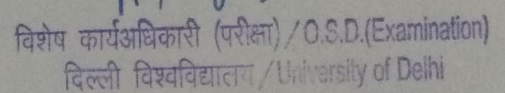 विशेष कार्यअधिकारी (परीक्षा) / O.S.D.(Examination)
दिल्ली विश्वविद्यालय / University of Delhi